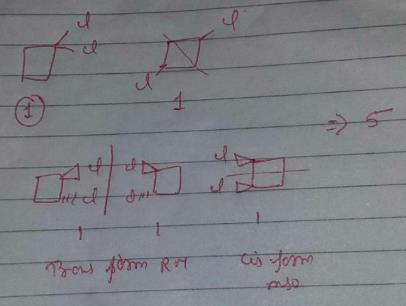 cl cl
cl cl
① 1
⇒ 5
cl cl cl cl
cl cl
1 1 1
Trans form RM Cis form
mso